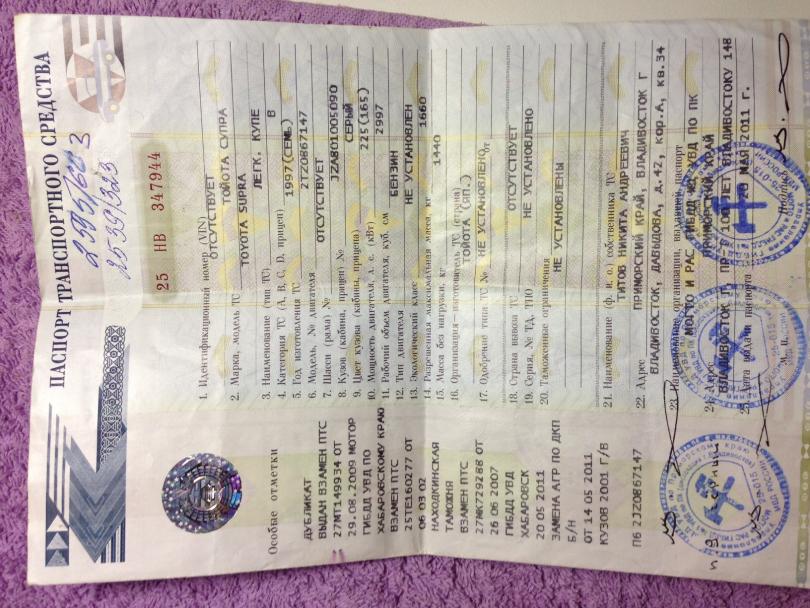 ПАСПОРТ ТРАНСПОРТНОГО СРЕДСТВА
25 НВ 347944
1. Идентификационный номер (VIN) ОТСУТСТВУЕТ
2. Марка, модель ТС ТОЙОТА СУПРА
TOYOTA SUPRA
3. Наименование (тип ТС) ЛЕГК. КУПЕ
4. Категория ТС (A, B, C, D, прицеп) В
5. Год изготовления ТС 1997(СЕМЬ)
6. Модель, № двигателя 2JZ0867147
7. Шасси (рама) № ОТСУТСТВУЕТ
8. Кузов (кабина, прицеп) № JZA801005090
9. Цвет кузова (кабины, прицепа) СЕРЫЙ
10. Мощность двигателя, л. с. (кВт) 225(165)
11. Рабочий объем двигателя, куб. см 2997
12. Тип двигателя БЕНЗИН
13. Экологический класс НЕ УСТАНОВЛЕН
14. Разрешенная максимальная масса, кг 1660
15. Масса без нагрузки, кг 1440
16. Организация-изготовитель ТС (страна)
ТОЙОТА (ЯП.)
17. Одобрение типа ТС № НЕ УСТАНОВЛЕНО от
18. Страна вывоза ТС ОТСУТСТВУЕТ
19. Серия, № ТД, ТПО НЕ УСТАНОВЛЕНО
20. Таможенные ограничения
НЕ УСТАНОВЛЕНЫ
21. Наименование (ф. и. о.) собственника ТС
ТИТОВ НИКИТА АНДРЕЕВИЧ
22. Адрес ПРИМОРСКИЙ КРАЙ, ВЛАДИВОСТОК Г
ВЛАДИВОСТОК, ДАВЫДОВА, д.42, кор.А, кв.34
23. Наименование организации, выдавшей паспорт
МОГТО И РАС ГИБДД УВД ПО ПК
24. Адрес ПРИМОРСКИЙ КРАЙ
ВЛАДИВОСТОК Г. ПР-Т 100 ЛЕТ ВЛАДИВОСТОКУ 148
25. Дата выдачи паспорта 20 МАЯ 2011 г.
М. П. Подпись
Особые отметки
ДУБЛИКАТ
ВЫДАН ВЗАМЕН ПТС
27МТ149934 ОТ
29.08.2009 МОТОР
ГИБДД УВД ПО
ХАБАРОВСКОМУ КРАЮ
ВЗАМЕН ПТС
25ТЕ160277 ОТ
06 03 02
НАХОДКИНСКАЯ
ТАМОЖНЯ
ВЗАМЕН ПТС
27МК729288 ОТ
26 06 2007
ГИБДД УВД
ХАБАРОВСК
20 05 2011
ЗАМЕНА АГР ПО ДКП
Б/Н
ОТ 14 05 2011
КУЗОВ 2001 Г/В
П6 2JZ0867147